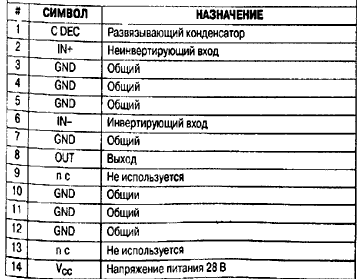 # СИМВОЛ НАЗНАЧЕНИЕ
1 C DEC Развязывающий конденсатор
2 IN+ Неинвертирующий вход
3 GND Общий
4 GND Общий
5 GND Общий
6 IN– Инвертирующий вход
7 GND Общий
8 OUT Выход
9 n c Не используется
10 GND Общии
11 GND Общий
12 GND Общий
13 n c Не используется
14 Vcc Напряжение питания 28 В